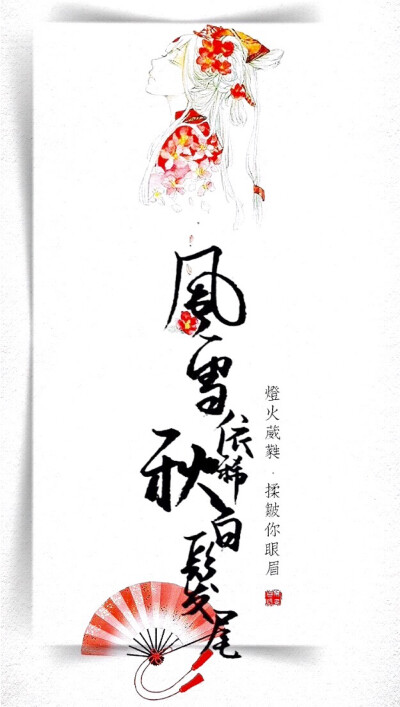 風雪依稀秋白髮尾
燈火葳蕤·揉皺你眼眉